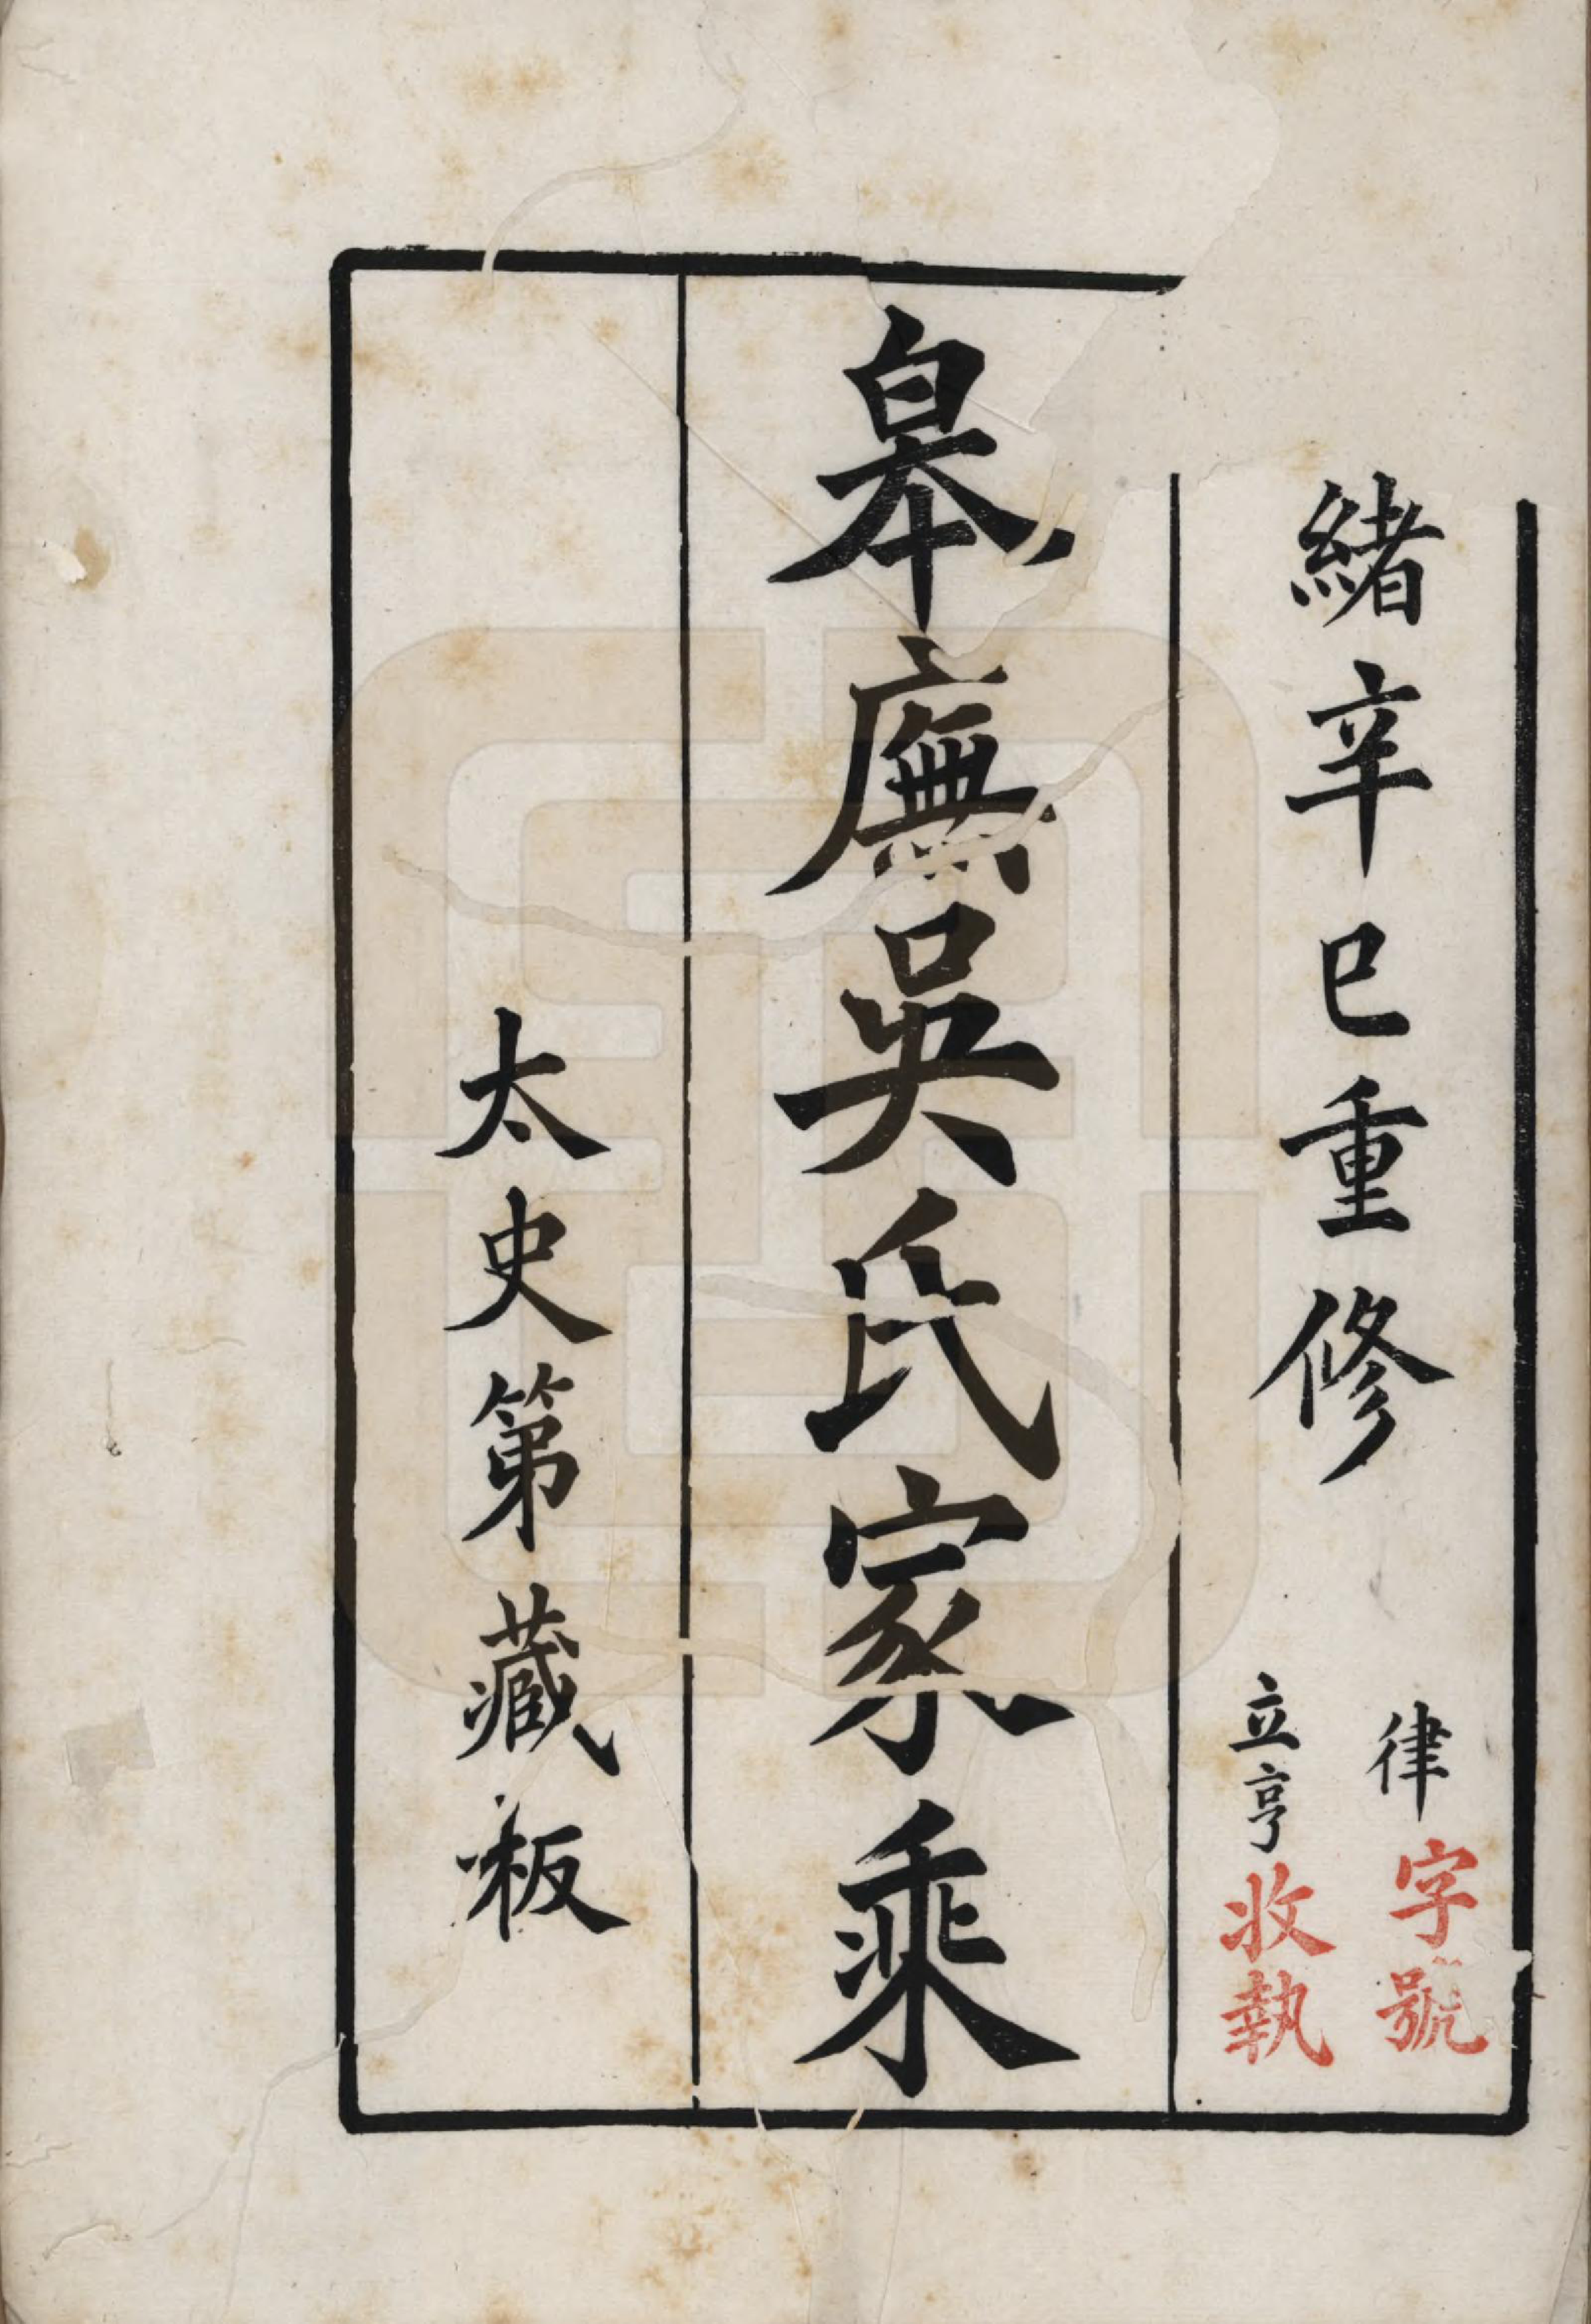 緒辛巳重修
律字號
立亨收執
皋廡吳氏家乘
太史第藏板